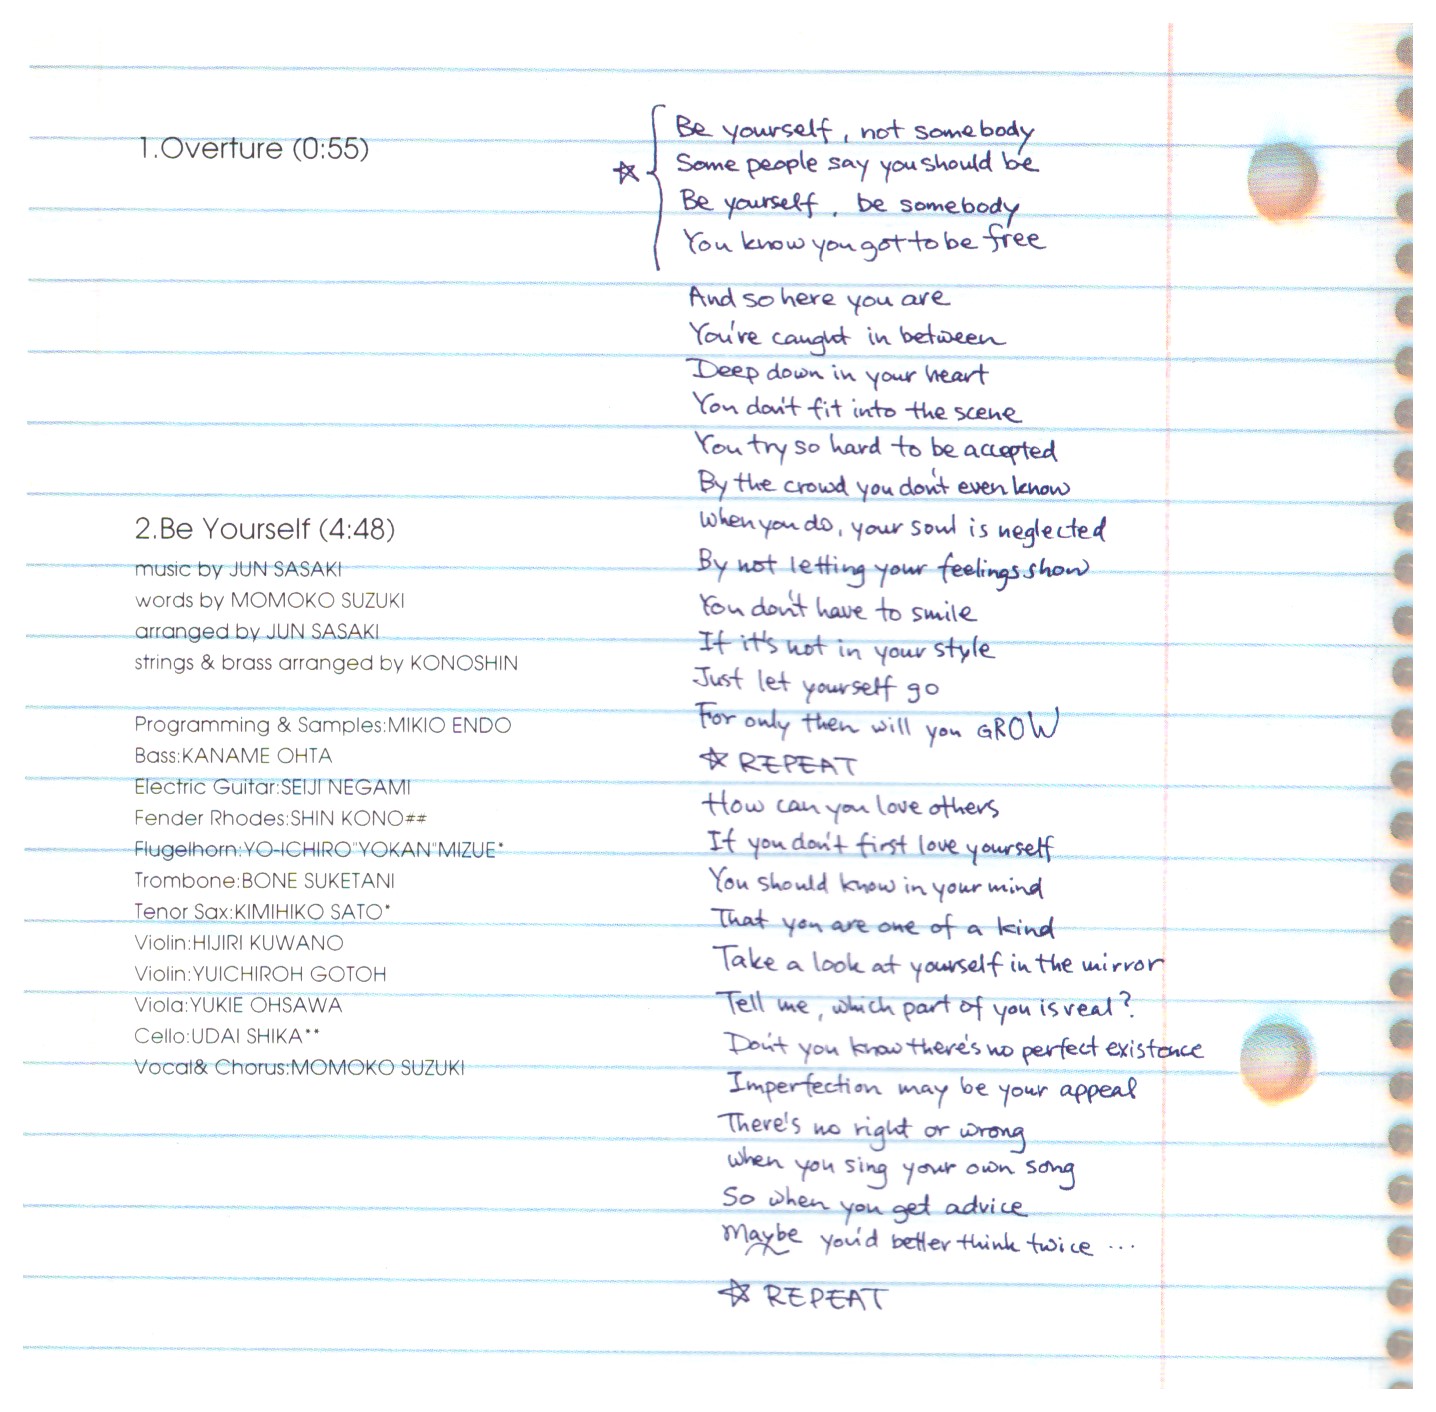 1.Overture (0:55)
2.Be Yourself (4:48)
music by JUN SASAKI
words by MOMOKO SUZUKI
arranged by JUN SASAKI
strings & brass arranged by KONOSHIN
Programming & Samples:MIKIO ENDO
Bass:KANAME OHTA
Electric Guitar:SEIJI NEGAMI
Fender Rhodes:SHIN KONO##
Flugelhorn:YO-ICHIRO"YOKAN"MIZUE*
Trombone:BONE SUKETANI
Tenor Sax:KIMIHIKO SATO*
Violin:HIJIRI KUWANO
Violin:YUICHIROH GOTOH
Viola:YUKIE OHSAWA
Cello:UDAI SHIKA**
Vocal& Chorus:MOMOKO SUZUKI
☆ { Be yourself, not somebody
Some people say you should be
Be yourself, be somebody
You know you got to be free
And so here you are
You're caught in between
Deep down in your heart
You don't fit into the scene
You try so hard to be accepted
By the crowd you don't even know
When you do, your soul is neglected
By not letting your feelings show
You don't have to smile
If it's not in your style
Just let yourself go
For only then will you GROW
☆ REPEAT
How can you love others
If you don't first love yourself
You should know in your mind
That you are one of a kind
Take a look at yourself in the mirror
Tell me, which part of you is real?
Don't you know there's no perfect existence
Imperfection may be your appeal
There's no right or wrong
When you sing your own song
So when you get advice
Maybe you'd better think twice ...
☆ REPEAT